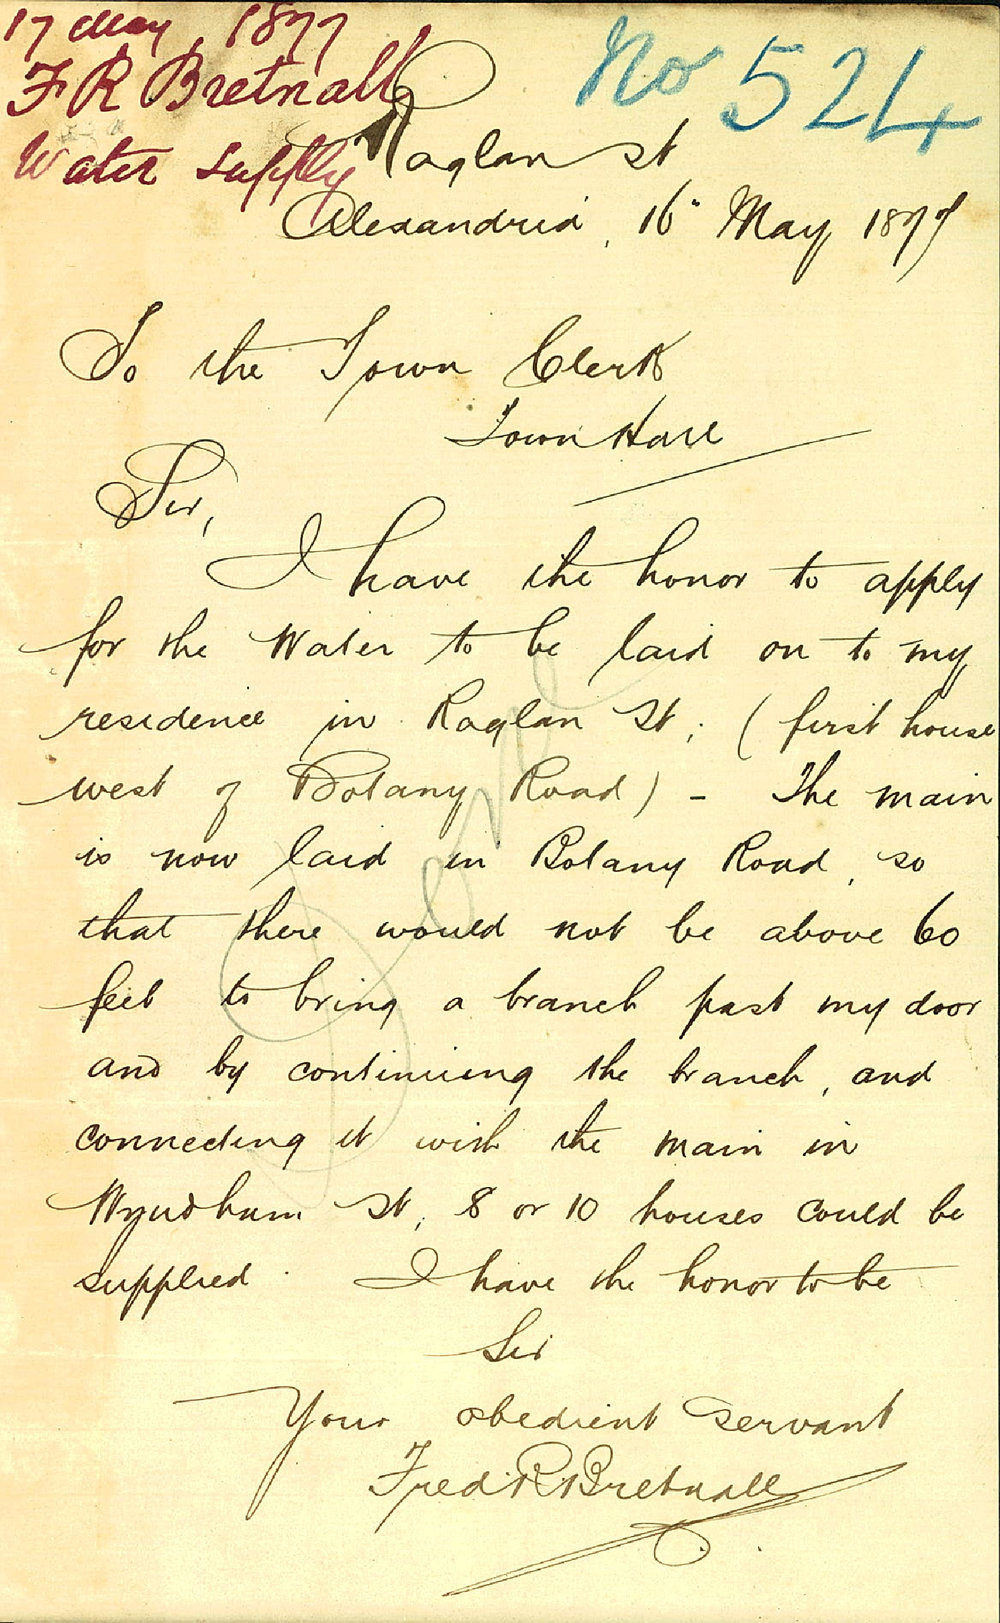 17 May 1877
F R Bretnall
Water Supply
No 524
Raglan St
Alexandria, 16" May 1877
To the Town Clerk
Town Hall
Sir,
I have the honor to apply
for the Water to be laid on to my
residence in Raglan St, (first house
west of Botany Road) - The main
is now laid in Botany Road, so
that there would not be above 60
feet to bring a branch past my door
and by continuing the branch, and
connecting it with the main in
Wyndham St, 8 or 10 houses could be
supplied. I have the honor to be
Sir
Your obedient servant
Fred R Bretnall